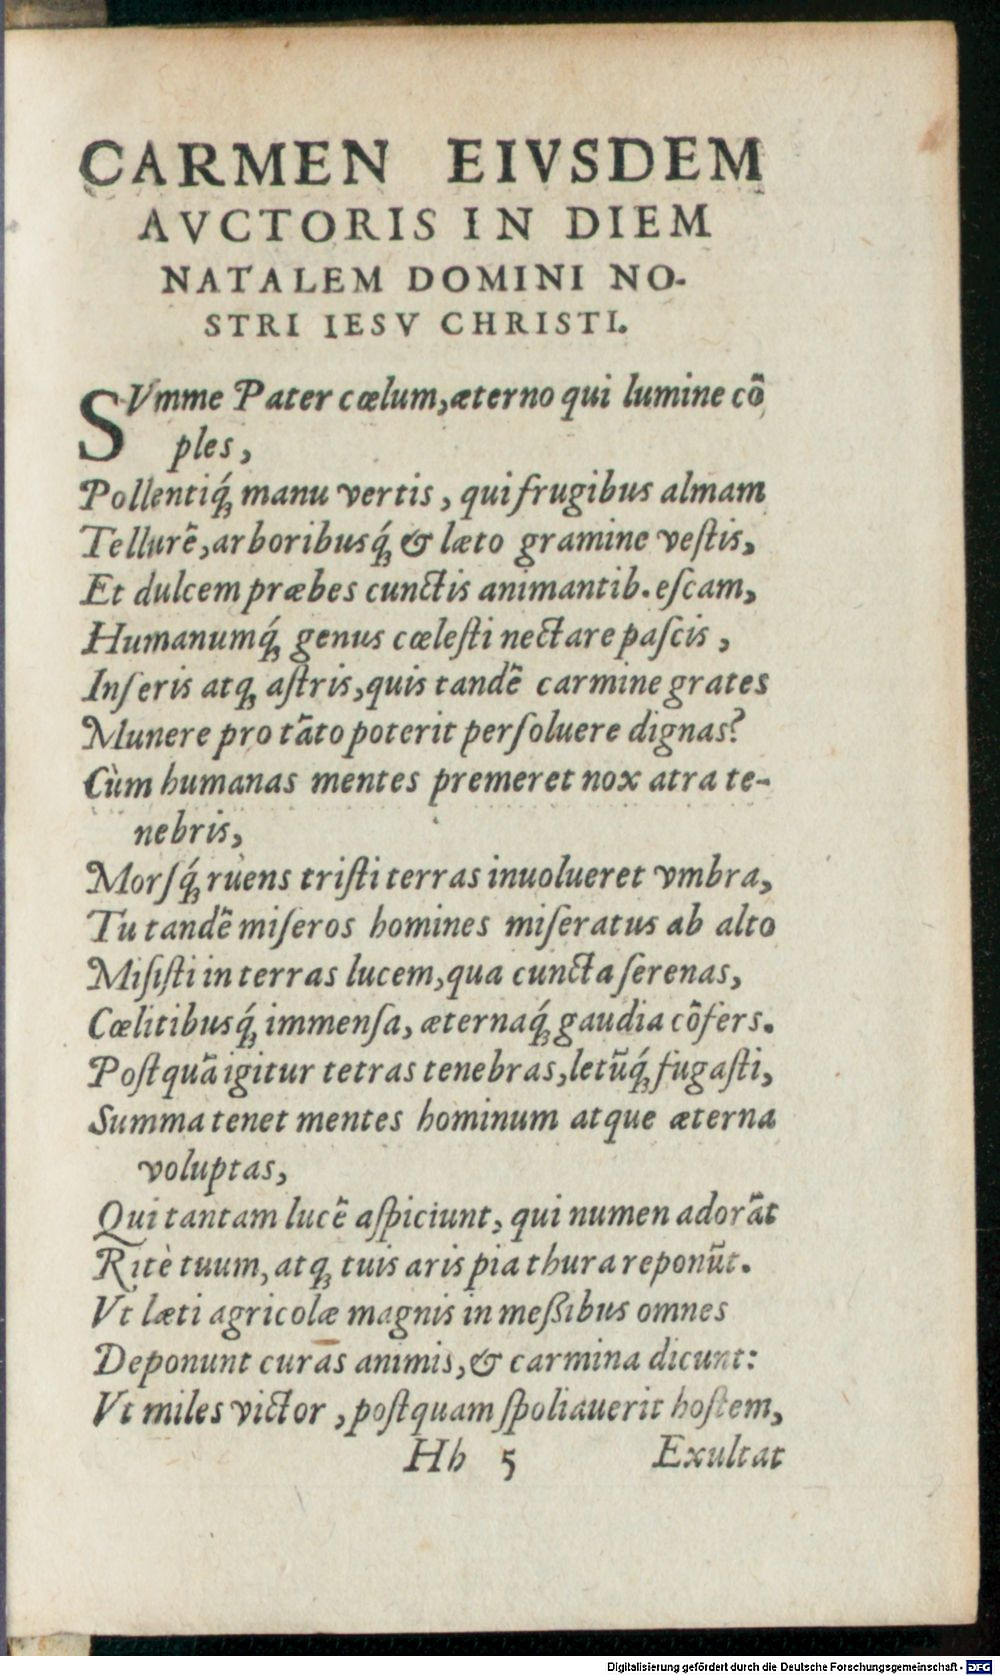 CARMEN EIVSDEM
AVCTORIS IN DIEM
NATALEM DOMINI NO-
STRI IESV CHRISTI.
SVmme Pater cœlum, æterno qui lumine cõ
ples,
Pollentiq́ manu vertis, qui frugibus almam
Tellurẽ, arboribusq́ & læto gramine veſtis,
Et dulcem præbes cunctis animantib. eſcam,
Humanumq́ genus cœleſti nectare paſcis,
Inſeris atq aſtris, quis tandẽ carmine grates
Munere pro tãto poterit perſoluere dignas?
Cùm humanas mentes premeret nox atra te-
nebris,
Morſq́ ruens triſti terras inuolueret vmbra,
Tu tandẽ miſeros homines miſeratus ab alto
Miſiſti in terras lucem, qua cuncta ſerenas,
Cœlitibusq́ immenſa, æternaq́ gaudia cõfers.
Poſtquã igitur tetras tenebras, letũq́ fugaſti,
Summa tenet mentes hominum atque æterna
voluptas,
Qui tantam lucẽ aſpiciunt, qui numen adorãt
Ritè tuum, atq tuis aris pia thura reponũt.
Vt læti agricolæ magnis in meßibus omnes
Deponunt curas animis, & carmina dicunt:
Vt miles victor, poſtquam ſpoliauerit hoſtem,
Hh 5 Exultat
Digitalisierung gefördert durch die Deutsche Forschungsgemeinschaft - DFG